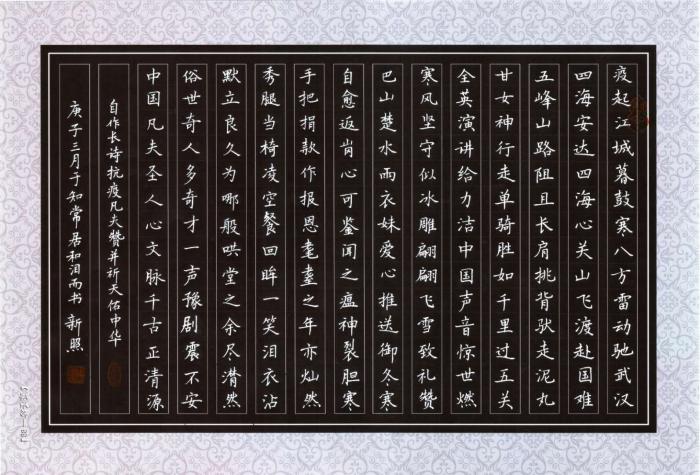 疫起江城暮鼓寒八方雷动驰武汉
四海安达四海心关山飞渡赴国难
五峰山路阻且长肩挑背驮走泥丸
廿女神行走单骑胜如千里过五关
全英演讲给力洁中国声音惊世燃
寒风坚守似冰雕翩翩飞雪致礼赞
巴山楚水雨衣妹爱心推送御冬寒
自愈返岗心可鉴闻之瘟神裂胆寒
手把捐款作报恩耄耋之年亦灿然
秀腿当椅凌空餐回眸一笑泪衣沾
默立良久为哪般哄堂之余尽潸然
俗世奇人多奇才一声豫剧震不安
中国凡夫圣人心文脉千古正清源
自作长诗抗疫凡夫赞并祈天佑中华
庚子三月于知常居和泪而书 新照